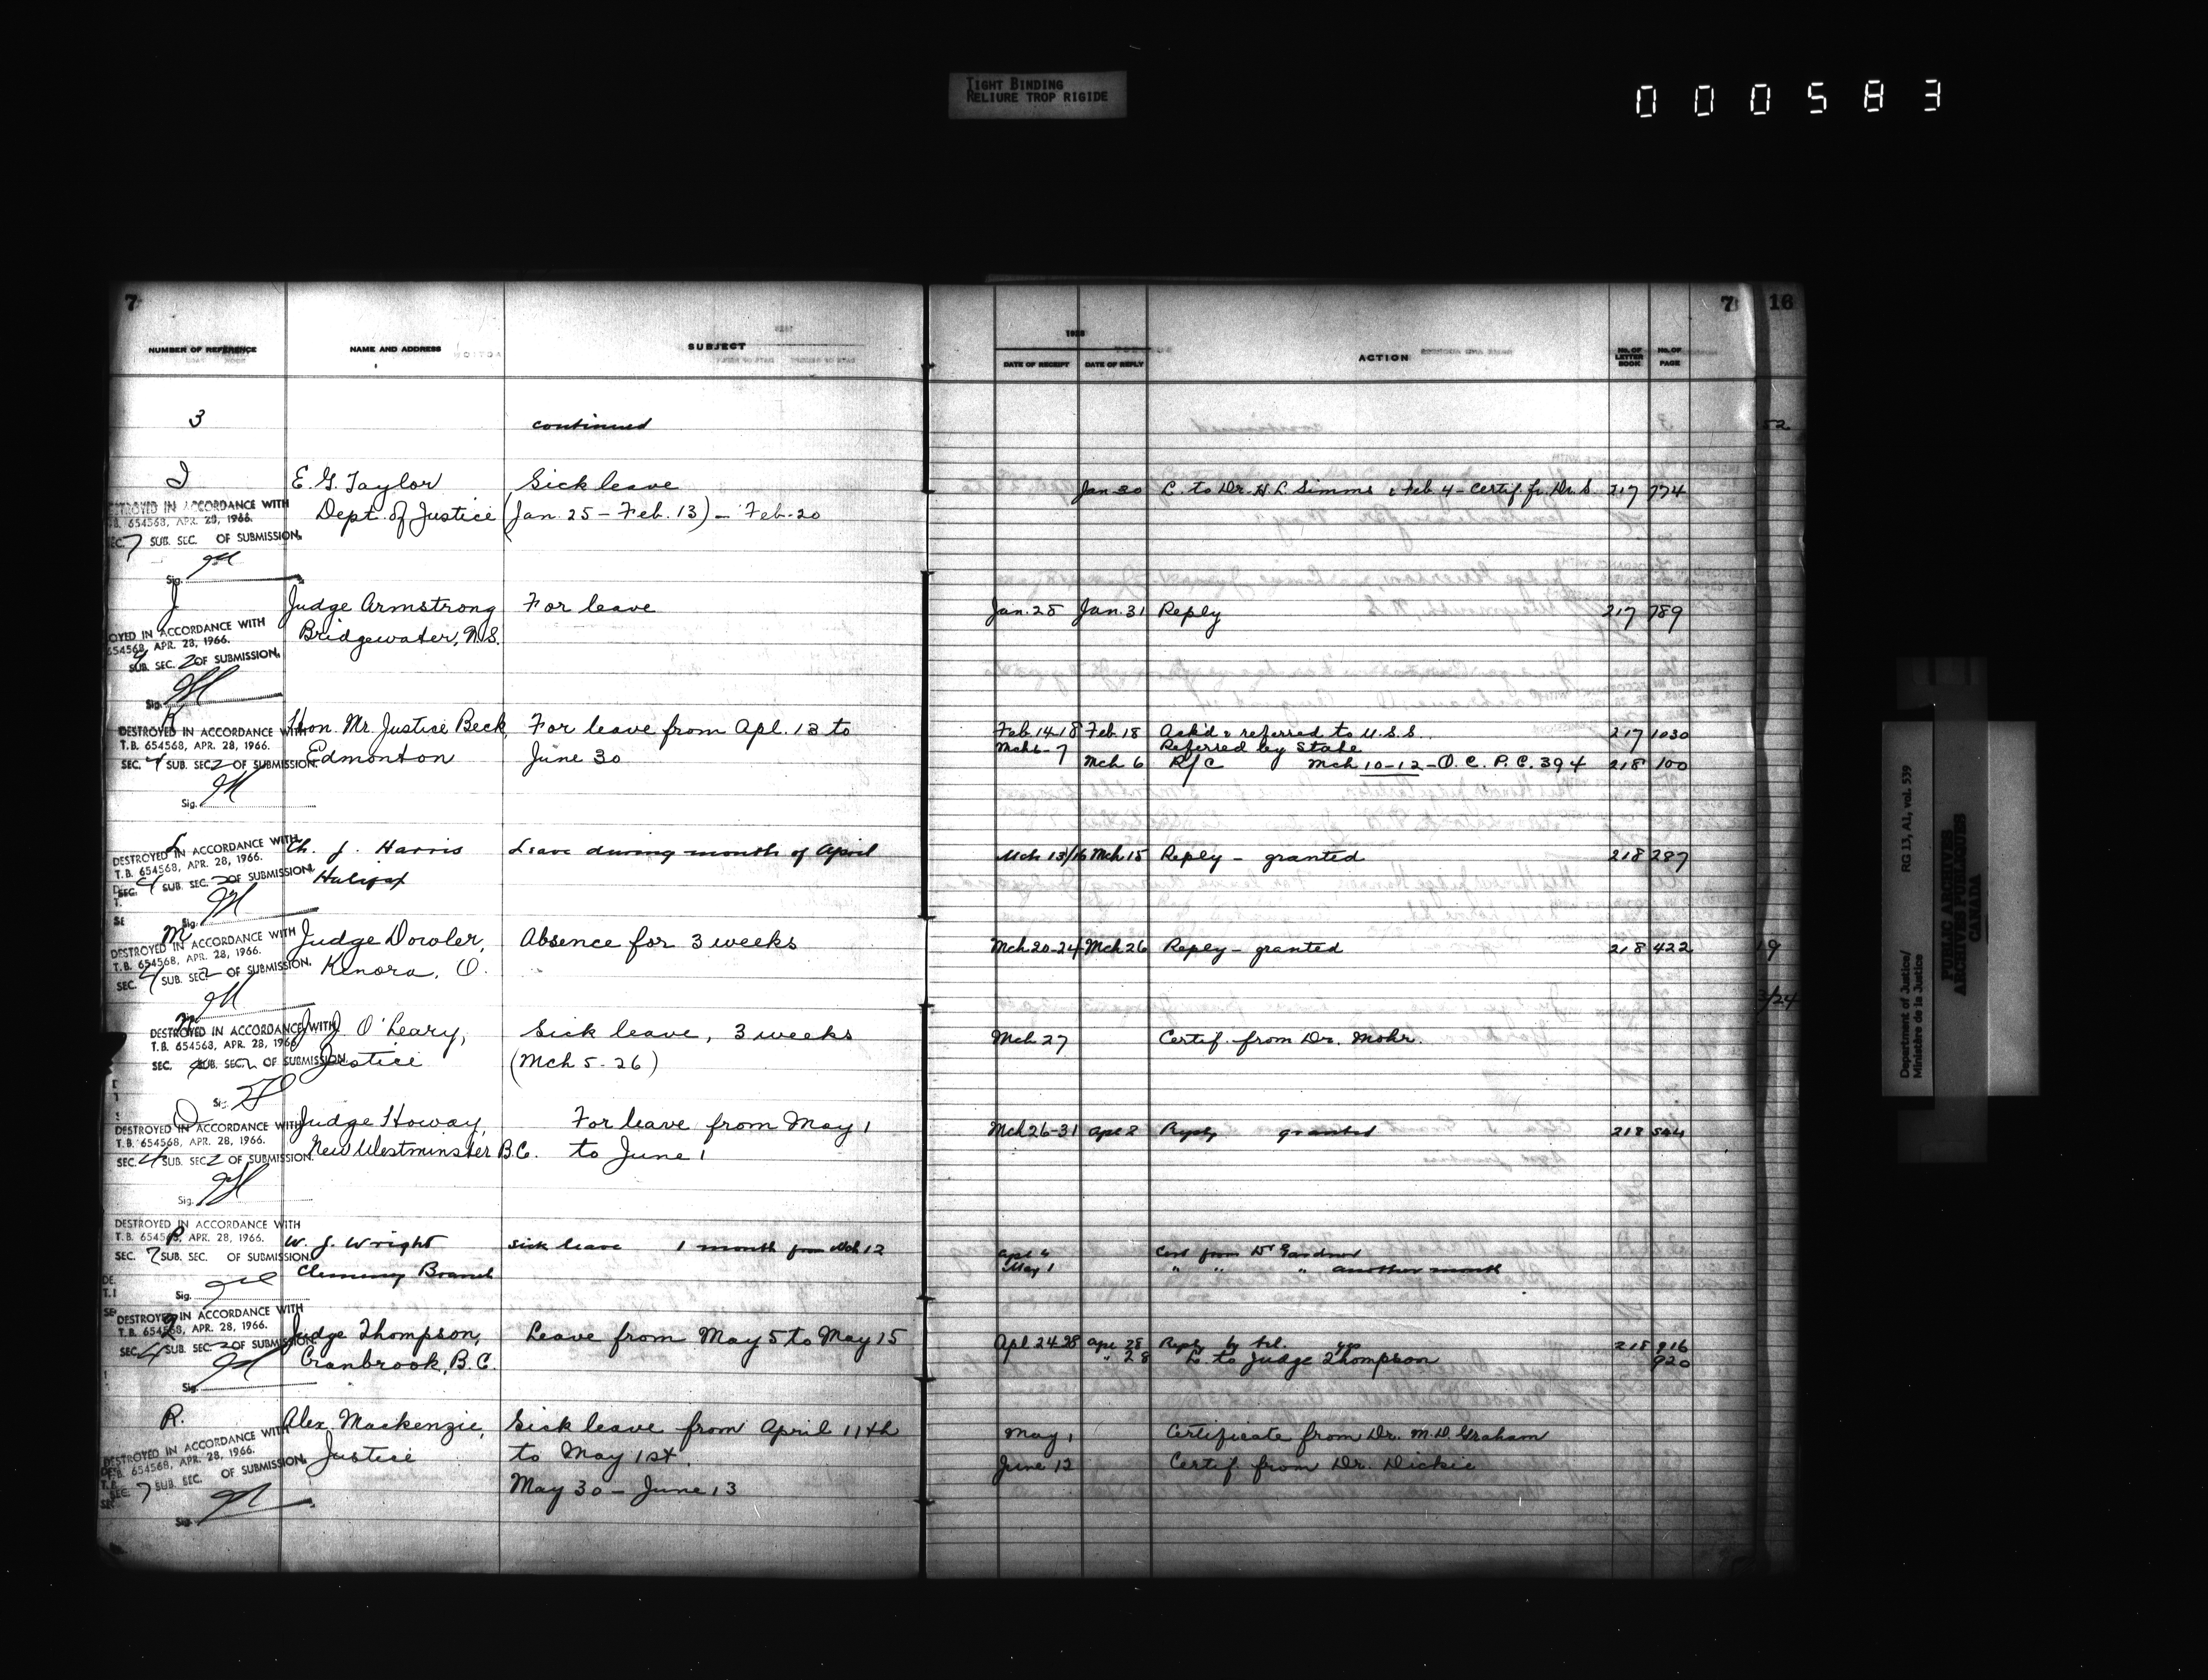 TIGHT BINDING
RELIURE TROP RIGIDE
000583
7
7 16
NUMBER OF REFERENCE NAME AND ADDRESS SUBJECT 1925 DATE OF RECEIPT DATE OF REPLY ACTION No. OF LETTER BOOK No. OF PAGE
3 continued
52
I E. G. Taylor Sick leave Jan 30 L. to Dr. H. L. Simms & Feb 4 - Certif. fr. Dr. S. 217 774
Dept. of Justice (Jan. 25 - Feb. 13) - Feb. 20
DESTROYED IN ACCORDANCE WITH
T.B. 654568, APR. 28, 1966.
SEC. 7 SUB. SEC. OF SUBMISSION.
Sig.
J Judge Armstrong For leave Jan. 28 Jan. 31 Reply 217 789
Bridgewater, N.S.
OYED IN ACCORDANCE WITH
654568, APR. 28, 1966.
4 SUB. SEC. 2 OF SUBMISSION.
Sig.
K Hon. Mr. Justice Beck, For leave from Apl. 13 to Feb. 14-18 Feb. 18 Ack'd & referred to U.S.S. 217 1030
Mch 6-7 Referred by State
Edmonton June 30 Mch 6 R/C Mch 10-12 - O.C. P.C. 394 218 100
DESTROYED IN ACCORDANCE WITH
T.B. 654568, APR. 28, 1966.
SEC. 4 SUB. SEC. 2 OF SUBMISSION.
Sig.
L Ch. J. Harris Leave during month of April Mch 13/16 Mch 15 Reply - granted 218 287
Halifax
DESTROYED IN ACCORDANCE WITH
T.B. 654568, APR. 28, 1966.
SEC. 4 SUB. SEC. 2 OF SUBMISSION.
Sig.
M Judge Dowler, Absence for 3 weeks Mch 20-24 Mch 26 Reply - granted 218 422
19
Kenora, O.
DESTROYED IN ACCORDANCE WITH
T.B. 654568, APR. 28, 1966.
SEC. 4 SUB. SEC. 2 OF SUBMISSION.
3/24
N J. J. O'Leary, Sick leave, 3 weeks Mch 27 Certif. from Dr. Mohr.
Justice (Mch 5-26)
DESTROYED IN ACCORDANCE WITH
T.B. 654568, APR. 28, 1966
SEC. 4 SUB. SEC. 2 OF SUBMISSION.
Sig.
O Judge Howay, For leave from May 1 Mch 26-31 Apl 2 Reply granted 218 544
New Westminster B.C. to June 1
DESTROYED IN ACCORDANCE WITH
T.B. 654568, APR. 28, 1966.
SEC. 4 SUB. SEC. 2 OF SUBMISSION.
Sig.
P W. J. Wright Sick leave 1 month from Mch 12 Apl 4 Cert from Dr Gardner
Clemency Branch May 1 " " " another month
DESTROYED IN ACCORDANCE WITH
T.B. 654568, APR. 28, 1966.
SEC. 7 SUB. SEC. OF SUBMISSION.
Sig.
Q Judge Thompson, Leave from May 5 to May 15 Apl 24-28 Apl 28 Reply by tel. yes 218 916
Cranbrook, B.C. " 28 L. to Judge Thompson 920
DESTROYED IN ACCORDANCE WITH
T.B. 654568, APR. 28, 1966.
SEC. 4 SUB. SEC. 2 OF SUBMISSION.
Sig.
R. Alex. Mackenzie, Sick leave from April 11th May 1 Certificate from Dr. M.D. Graham
Justice to May 1st. June 12 Certif from Dr. Dickie
May 30 - June 13
DESTROYED IN ACCORDANCE WITH
T.B. 654568, APR. 28, 1966.
SEC. 7 SUB. SEC. OF SUBMISSION.
Sig.
Department of Justice/ RG 13, A1, vol. 539
Ministère de la Justice
PUBLIC ARCHIVES
ARCHIVES PUBLIQUES
CANADA